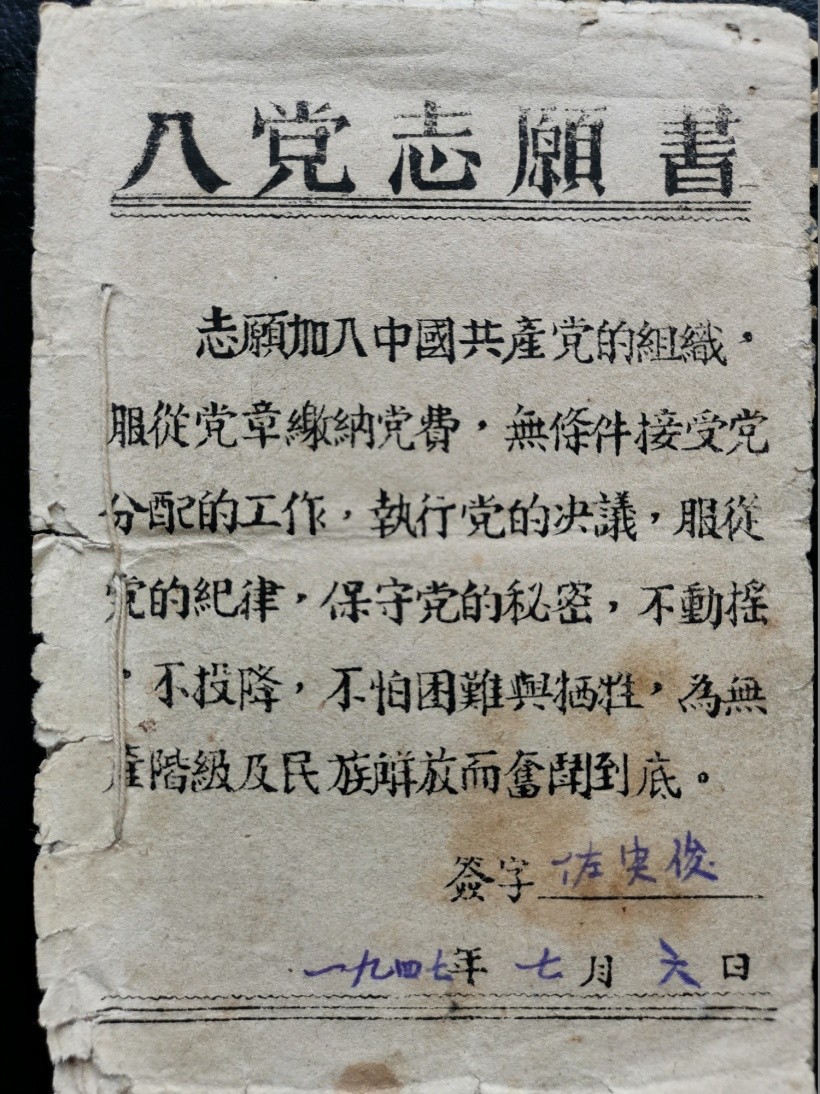 入党志願書
志願加入中國共產党的組織，
服從党章繳納党費，無條件接受党
分配的工作，執行党的決議，服從
党的紀律，保守党的秘密，不動搖
，不投降，不怕困難與牺牲，為無
產階級及民族解放而奮鬪到底。
簽字 佐史俊
一九四七年 七月 六日